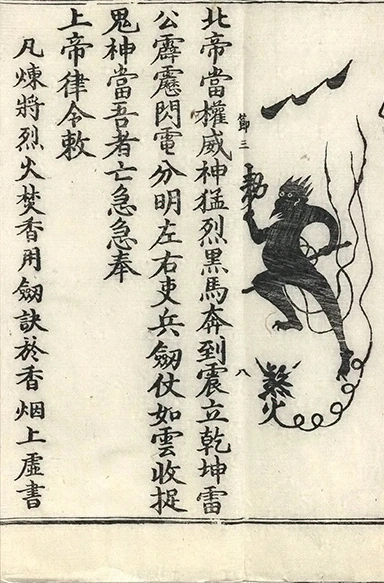 節三
八
北帝當權威神猛烈黑馬奔到震立乾坤雷
公霹靂閃電分明左右吏兵劒仗如雲收捉
鬼神當吾者亡急急奉
上帝律令敕
凡煉將烈火焚香用劒訣於香烟上虛書